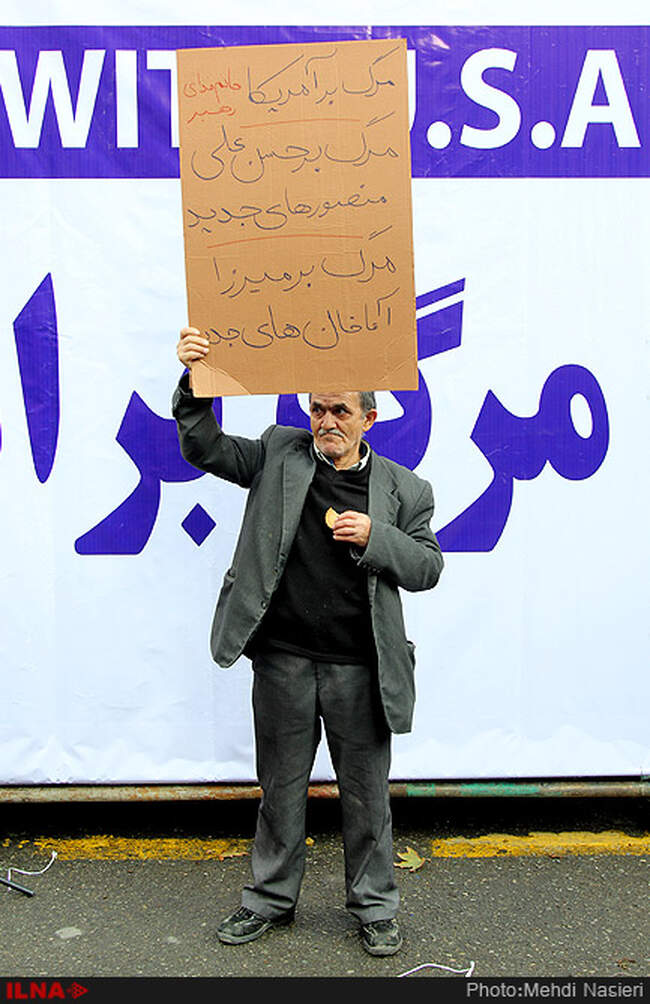 WIT
U.S.A
مرگ بر آمریکا
رهبر
مرگ بر حسن علی
منصورهای جدید
مرگ بر میرزا
آقاخان های جدید
مرگ بر ا
ILNA
Photo:Mehdi Nasieri